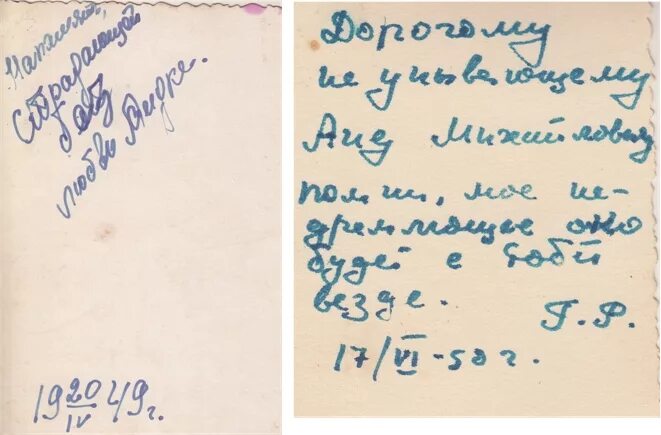 страдающей
без
любви Лидке.
19 20/IV 49 г.
Дорогому
не унывающему
Аид Михайловичу
помни, мое не-
дремлющее око
будет с тобой
везде.
Г.Р.
17/VI-50 г.